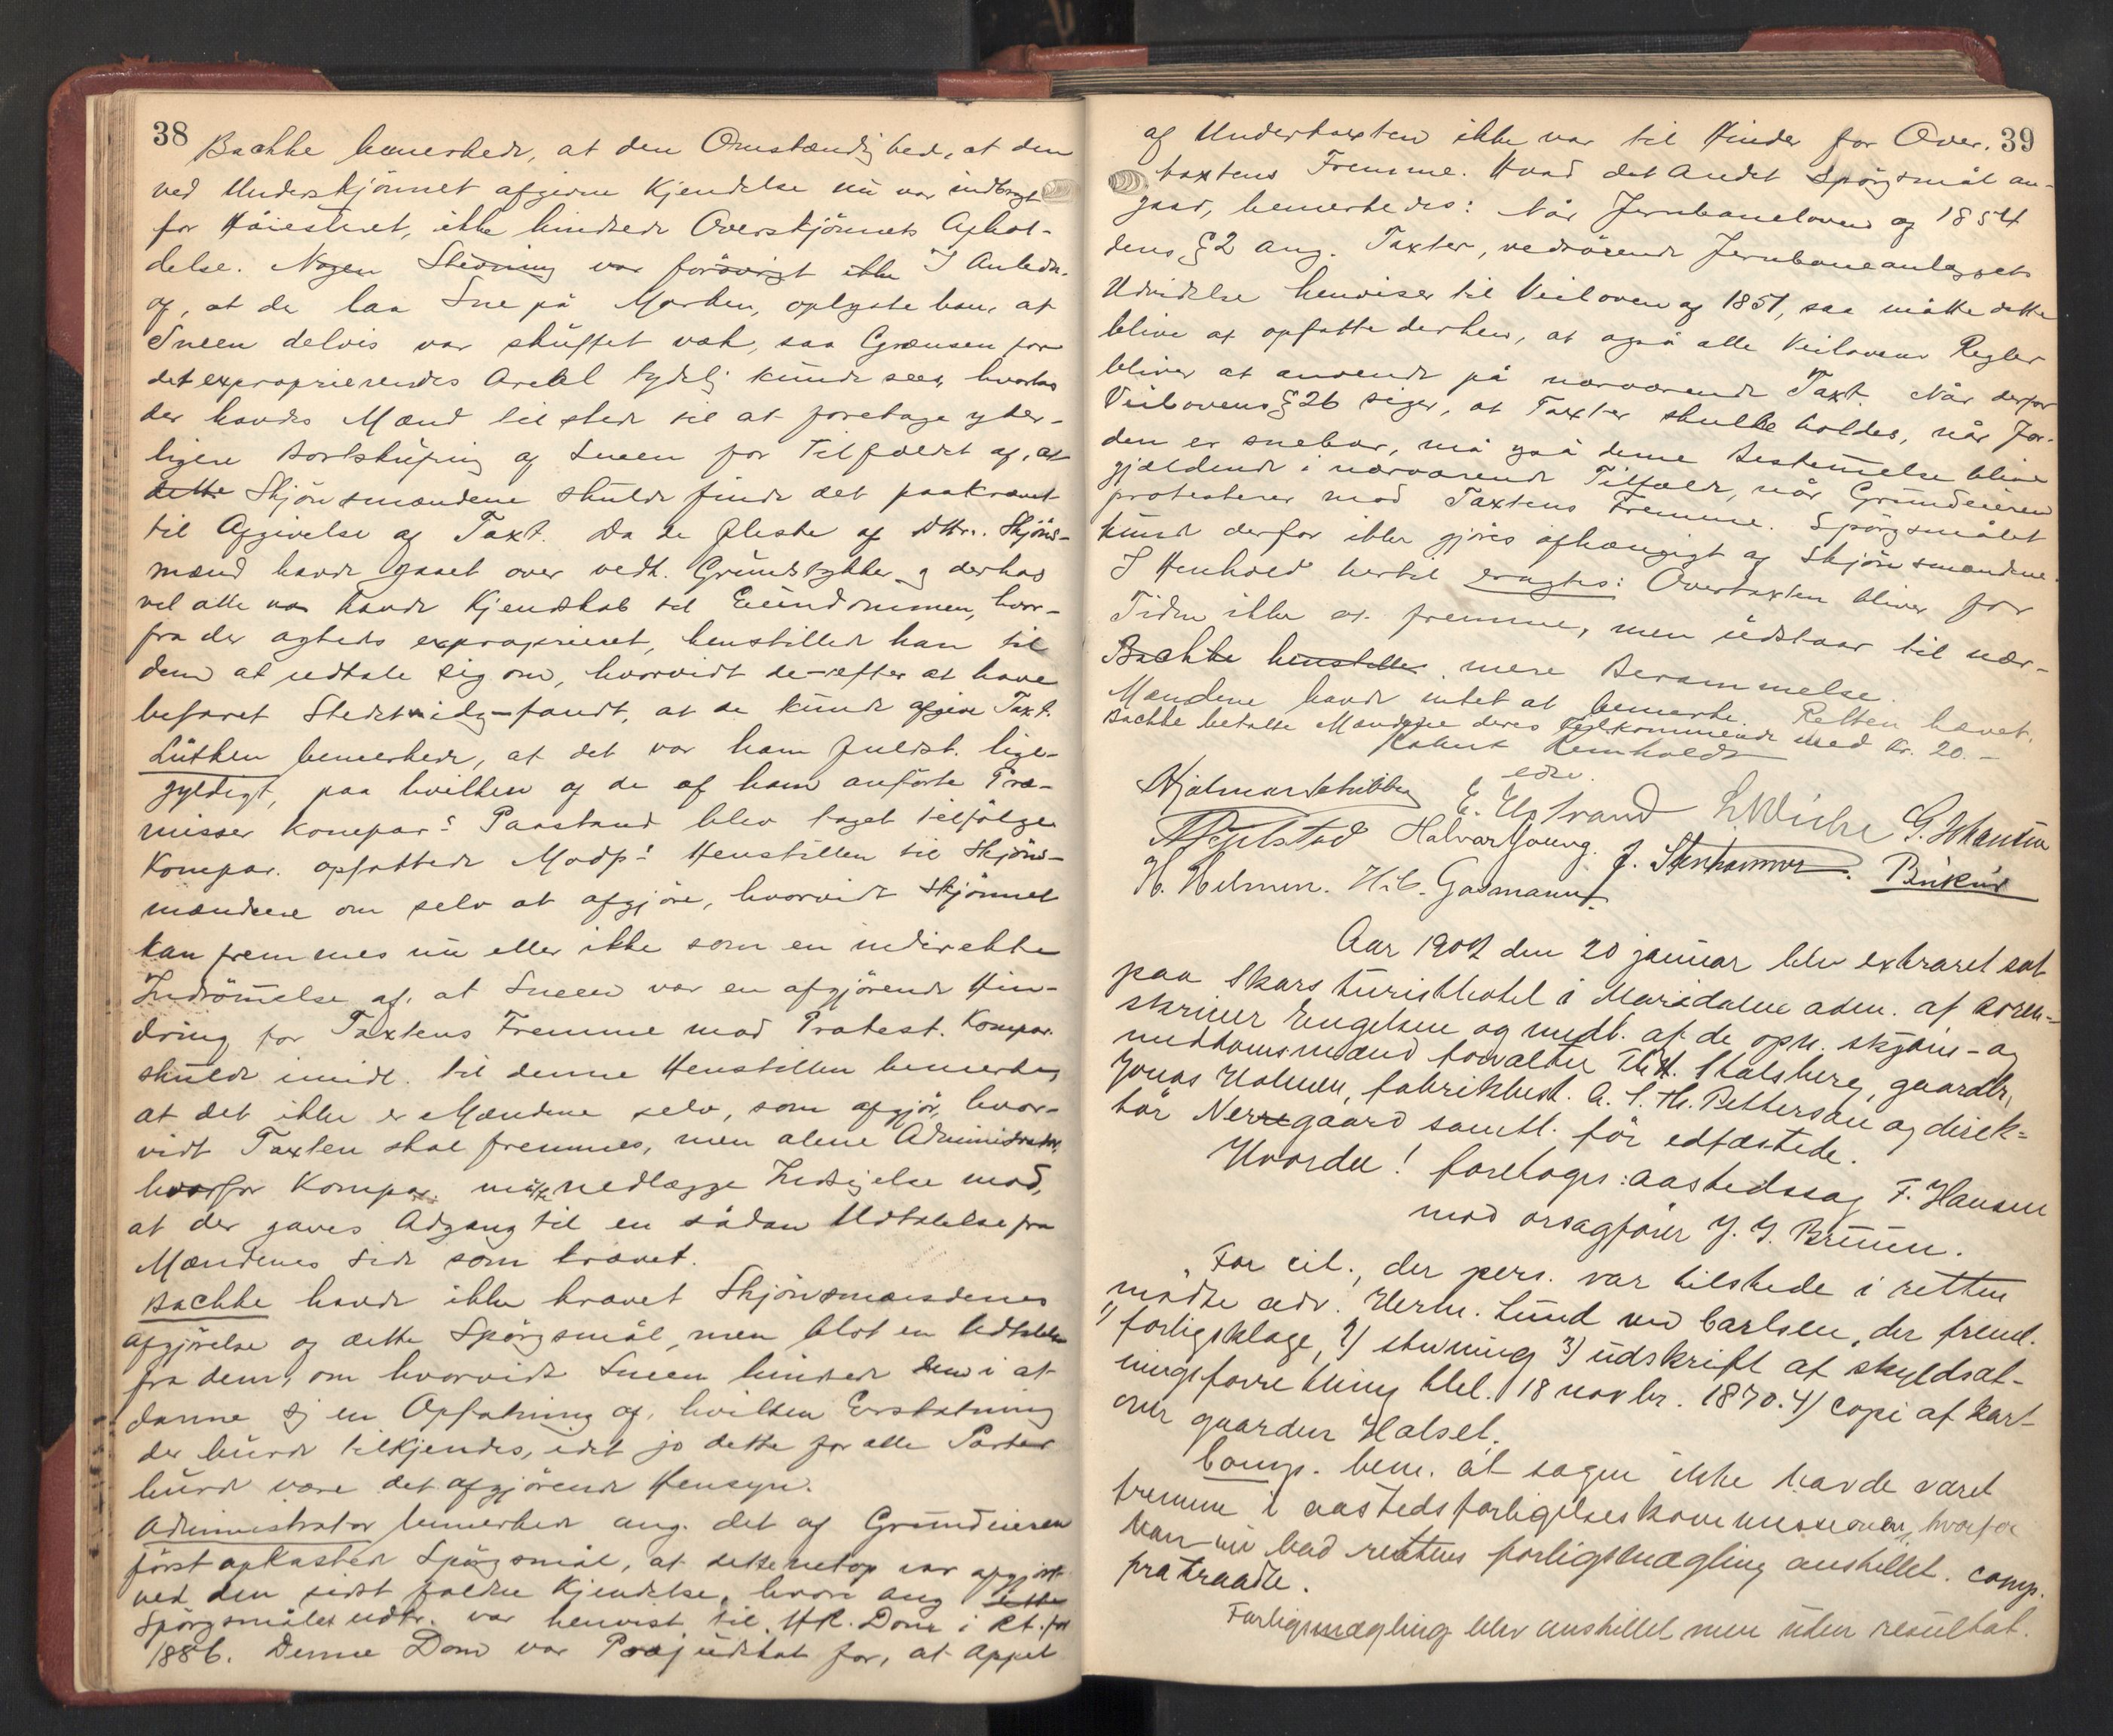 38
Bachke bemerkede, at den Omstændighed, at den
ved Underskjönnet afgivne Kjendelse nu var indbragt
for Höiesteret, ikke hindrede Overskjönnets Afhol-
delse. Nogen Stevning var forövrigt ikke I Anledn.
af, at der laa Sne på Marken, oplyste han, at
Sneen delvis var skuffet væk, saa Grænsen for
det exproprierendes Areal tydelig kunde sees, hvorhos
der havdes Mænd tilstede til at foretage yder-
ligere Bortskufning af Sneen for Tilfældet af, at
dette Skjönsmændene skulde finde det paakrævet
til Afgivelse af Taxt. Da de fleste af DHrr. Skjöns-
mænd havde gaaet over vedk. Grundstykker og derhos
vel alle havde Kjendskab til Eiendommen, hvor-
fra der agtedes exproprieret, henstillede han til
dem at udtale sig om, hvorvidt de efter at have
befaret Stedet fandt, at de kunde afgive Taxt.
Lütken bemerkede, at det var ham fuldst. lige-
gyldigt, paa hvilken af de af ham anförte Præ-
misser Kompar.s Paastand blev taget tilfölge.
Kompar. opfattede Modp.s Henstillen til Skjöns-
mændene om selv at afgjöre, hvorvidt Skjönnet
kan fremmes nu eller ikke som en indirekte
Indrömmelse af, at Sneen var en afgjörende Hin-
dring for Taxtens Fremme mod Protest. Kompar.
skulde imidl. til denne Henstillen bemerke,
at det ikke er Mændene selv, som afgjör, hvor-
vidt Taxten skal fremmes, men alene Administrator,
hvorfor Kompar. måtte nedlægge Indsigelse mod,
at der gaves Adgang til en sådan Udtalelse fra
Mændenes Side som krævet.
Bachke havde ikke krævet Skjönsmændenes
Afgjörelse af dette Spörgsmål, men blot en Udtalelse
fra dem, om hvorvidt Sneen hindrede dem i at
danne sig en Opfatning af, hvilken Erstatning
der burde tilkjendes, idet jo dette for alle Parter
burde være det afgjörende Hensyn.
Administrator bemerkede ang. det af Grundeieren
först opkastede Spörgsmål, at dette netop var afgjort
ved den sidst faldne Kjendelse, hvori ang dette
Spörgsmålet udtr. var henvist til HR. Dom i Rt. for
1886. Denne Dom var Præjudikat for, at Appel
39
af Undertaxten ikke var til Hinder for Over-
taxtens Fremme. Hvad det Andet Spörgsmål an-
gaar, bemerkedes: Når Jernbaneloven af 1854
dens § 2 ang. Taxter, vedrörende Jernbaneanlæggets
Udvidelse henviser til Veiloven af 1851, saa måtte dette
blive at opfatte derhen, at også alle Veilovens Regler
bliver at anvende på nærværende Taxt. Når derfor
Veilovens § 26 siger, at Taxter skulle holdes, når Jor-
den er snebar, må også denne Bestemmelse blive
gjældende i nærværende Tilfælde, når Grundeieren
protesterer mod Taxtens Fremme. Spörgsmålet
kunde derfor ikke gjöres afhængigt af Skjönsmændene.
I Henhold hertil eragtes: Overtaxten bliver for
Tiden ikke at fremme, men udstaar til nær-
Bachke henstiller mere Berammelse.
Mændene havde intet at bemerke. Retten hævet.
Bachke betalte Mændene deres Tilkommende med Kr. 20.–
Reinholdt
edsv.
Hjalmar Schibbye E. Elstrand L. Wiche G. Johansen
Halvar Young. J. Stenhammer.
H. Helmen. H. C. Gasmann.
Aar 1902 den 20 januar blev extraret sat
paa Skars turisthotel i Maridalen adm. af soren-
skriver Engelsen og medb. af de opn. skjöns- og
meddomsmænd forvalter Th. H. Stalsberg, gaardbr.
Jonas Holmen, fabrikbest. A. S. H. Petterson og direk-
tör Nerregaard samtl. för edfæstede.
Hvorda! foretoges: aastedssag F. Hansen
mod orsagförer J. J. Bruun.
For cit., der pers. var tilstede i retten
mödte adv. Herm. Lund ved Carlsen, der freml.
1) forligsklage, 2) stevning 3) udskrift af skyldsæt-
ningsforretning thl. 18 novbr. 1870. 4) copi af kart
over gaarden Halset.
Comp. bem. at sagen ikke havde været
fremme i aastedsforligelseskommissionen, hvorfor
han nu bad rettens forligsmægling anstillet. Comp.
fratraadte.
Forligsmægling blev anstillet men uden resultat.